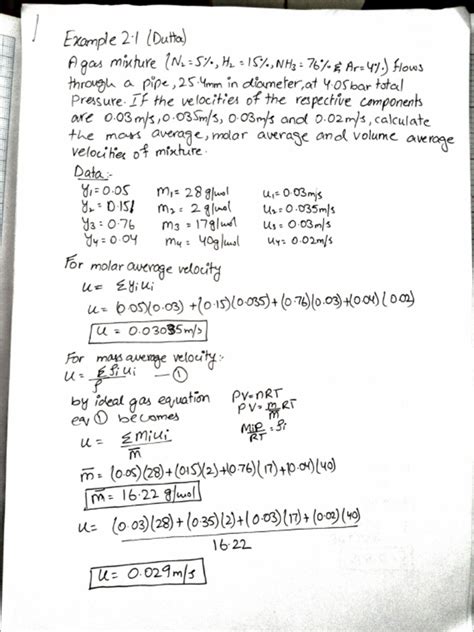 Example 2.1 (Dutta)
A gas mixture (N₂ = 5%, H₂ = 15%, NH₃ = 76% & Ar = 4%) flows
through a pipe, 25.4mm in diameter, at 4.05 bar total
Pressure. If the velocities of the respective components
are 0.03 m/s, 0.035m/s, 0.03 m/s and 0.02 m/s, calculate
the mass average, molar average and volume average
velocities of mixture.
Data:-
y₁ = 0.05 m₁ = 28 g/mol u₁ = 0.03 m/s
y₂ = 0.15 m₂ = 2 g/mol u₂ = 0.035 m/s
y₃ = 0.76 m₃ = 17 g/mol u₃ = 0.03 m/s
y₄ = 0.04 m₄ = 40 g/mol u₄ = 0.02 m/s
For molar average velocity
u = Σyᵢuᵢ
u = (0.05)(0.03) + (0.15)(0.035) + (0.76)(0.03) + (0.04)(0.02)
u = 0.03035 m/s
For mass average velocity:-
u = Σρᵢuᵢ / ρ — ①
by ideal gas equation PV = nRT
eq ① becomes PV = m/m̅ RT
u = ΣMᵢuᵢ / m̅ MᵢP/RT = ρᵢ
m̅ = (0.05)(28) + (015)(2) + (0.76)(17) + (0.04)(40)
m̅ = 16.22 g/mol
u = (0.03)(28) + (0.35)(2) + (0.03)(17) + (0.02)(40)
16.22
u = 0.029 m/s